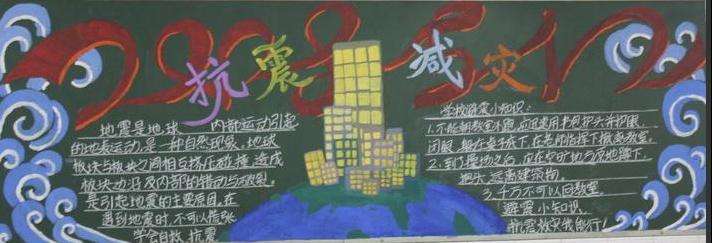 抗震 减灾
地震是地球 内部运动引起
的地表运动是一种自然现象，地球
板块与板块之间相互挤压碰撞，造成
板块边沿及内部的错动与破裂。
是引起地震的主要原因，在
遇到地震时，不可以慌张
学会自救 抗震
学校避震小知识：
1.不能
闭眼，躲在桌子底下，在老师指挥下撤离教室。
2.到了操场之后，应在空旷地方原地蹲下，
抱头，远离建筑物。
3.千万不可以回教室
避震小知识，
抗震救灾我能行！